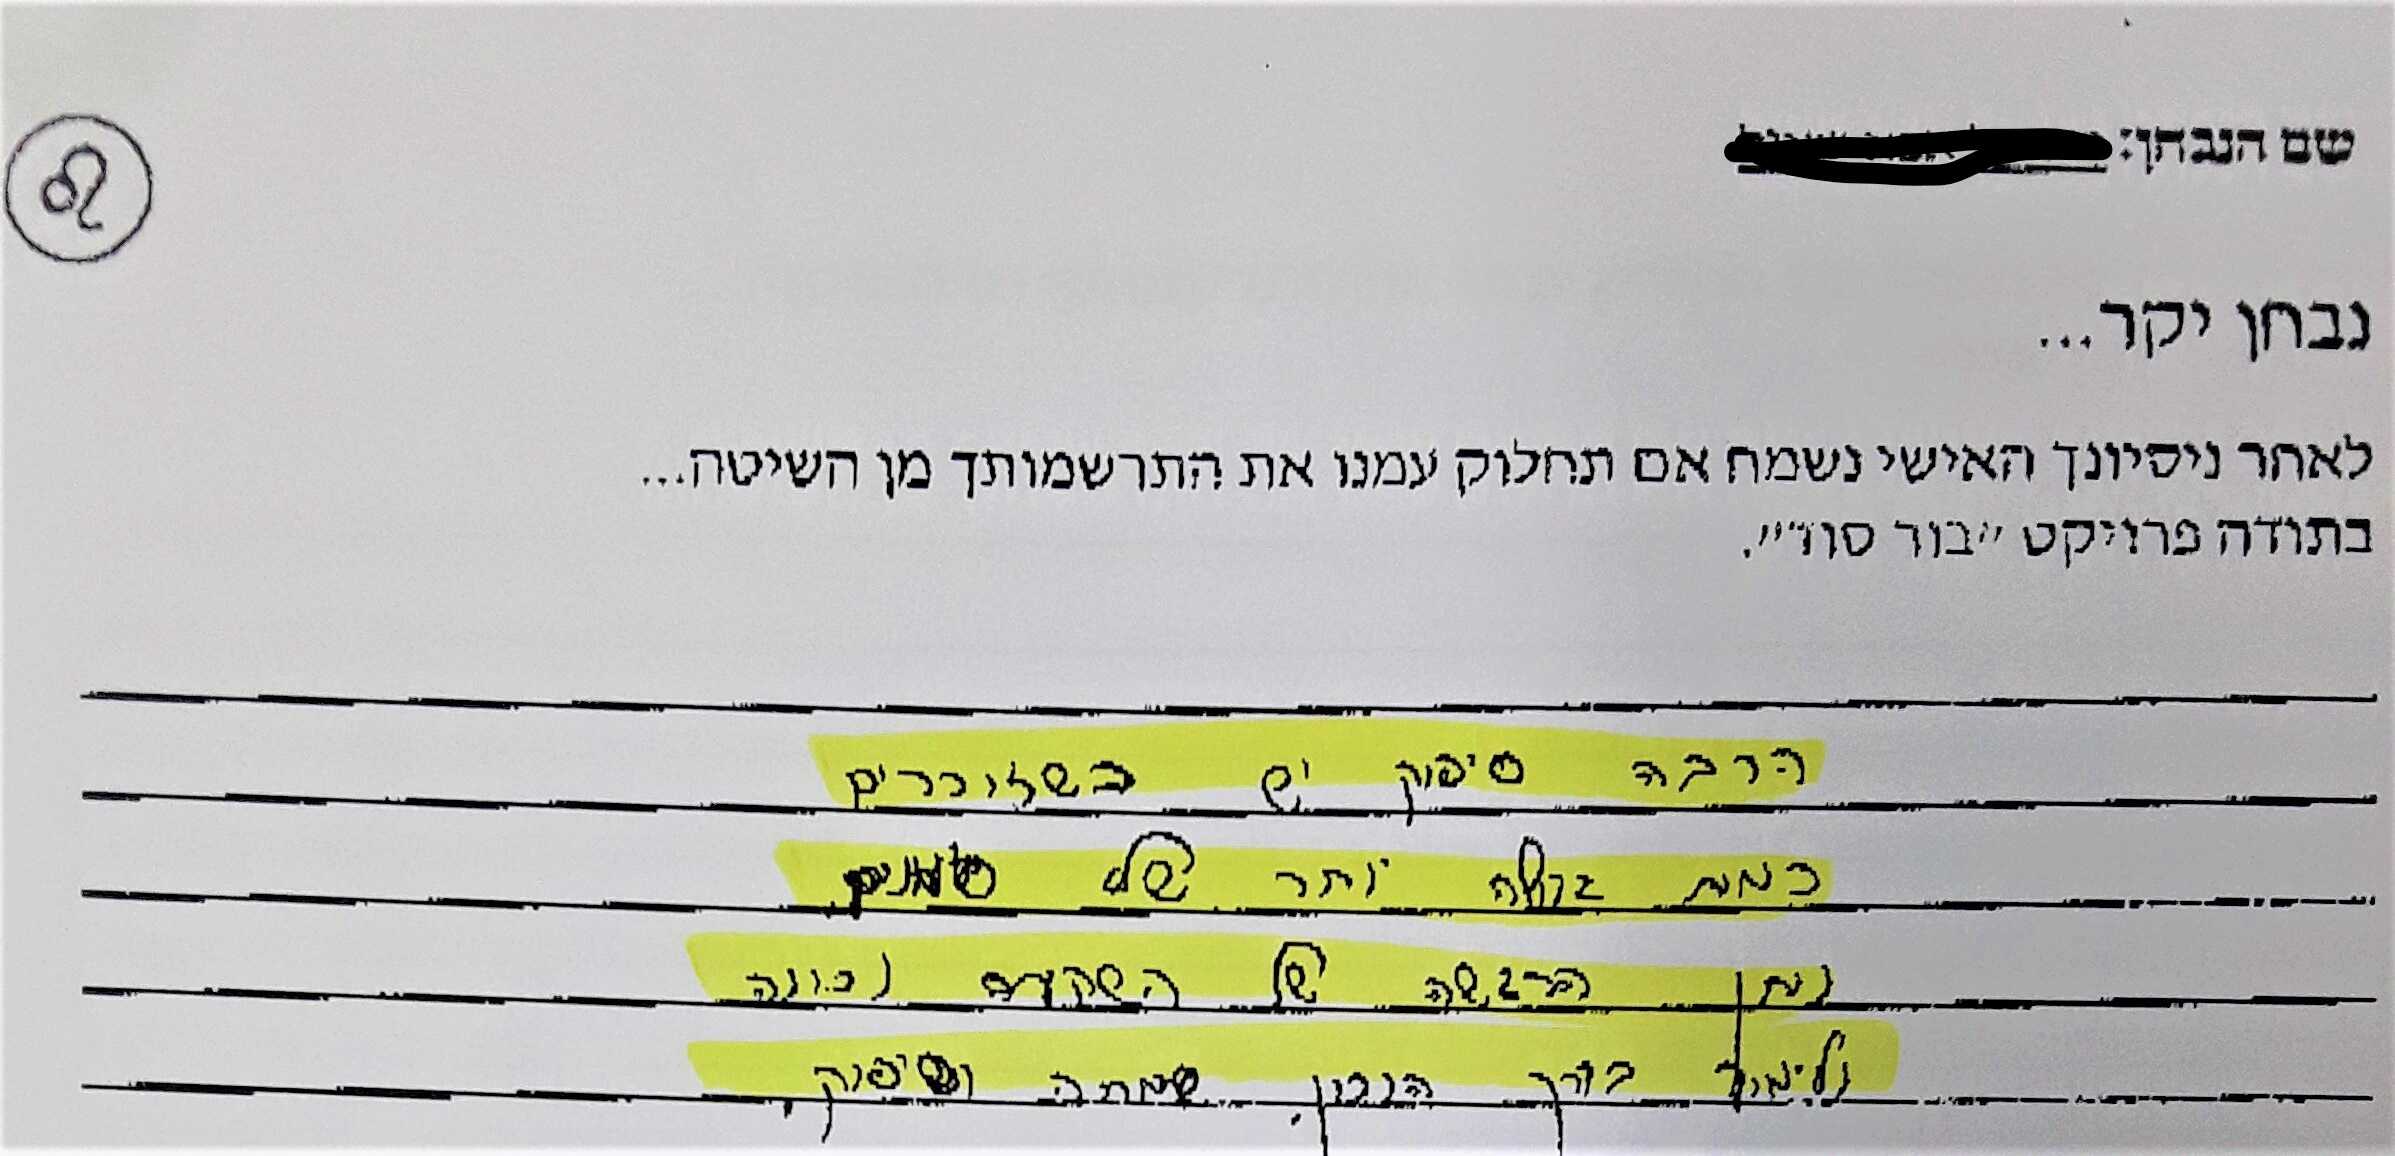 שם הנבחן:
נבחן יקר...
לאחר ניסיונך האישי נשמח אם תחלוק עמנו את התרשמותך מן השיטה...
בתודה פרויקט "בור סוד".
הרבה סיפוק יש כשזוכרים
כמות גדולה יותר של
הרגשה של השקעה נכונה
בדרך הנכון שאתה וסיפוק